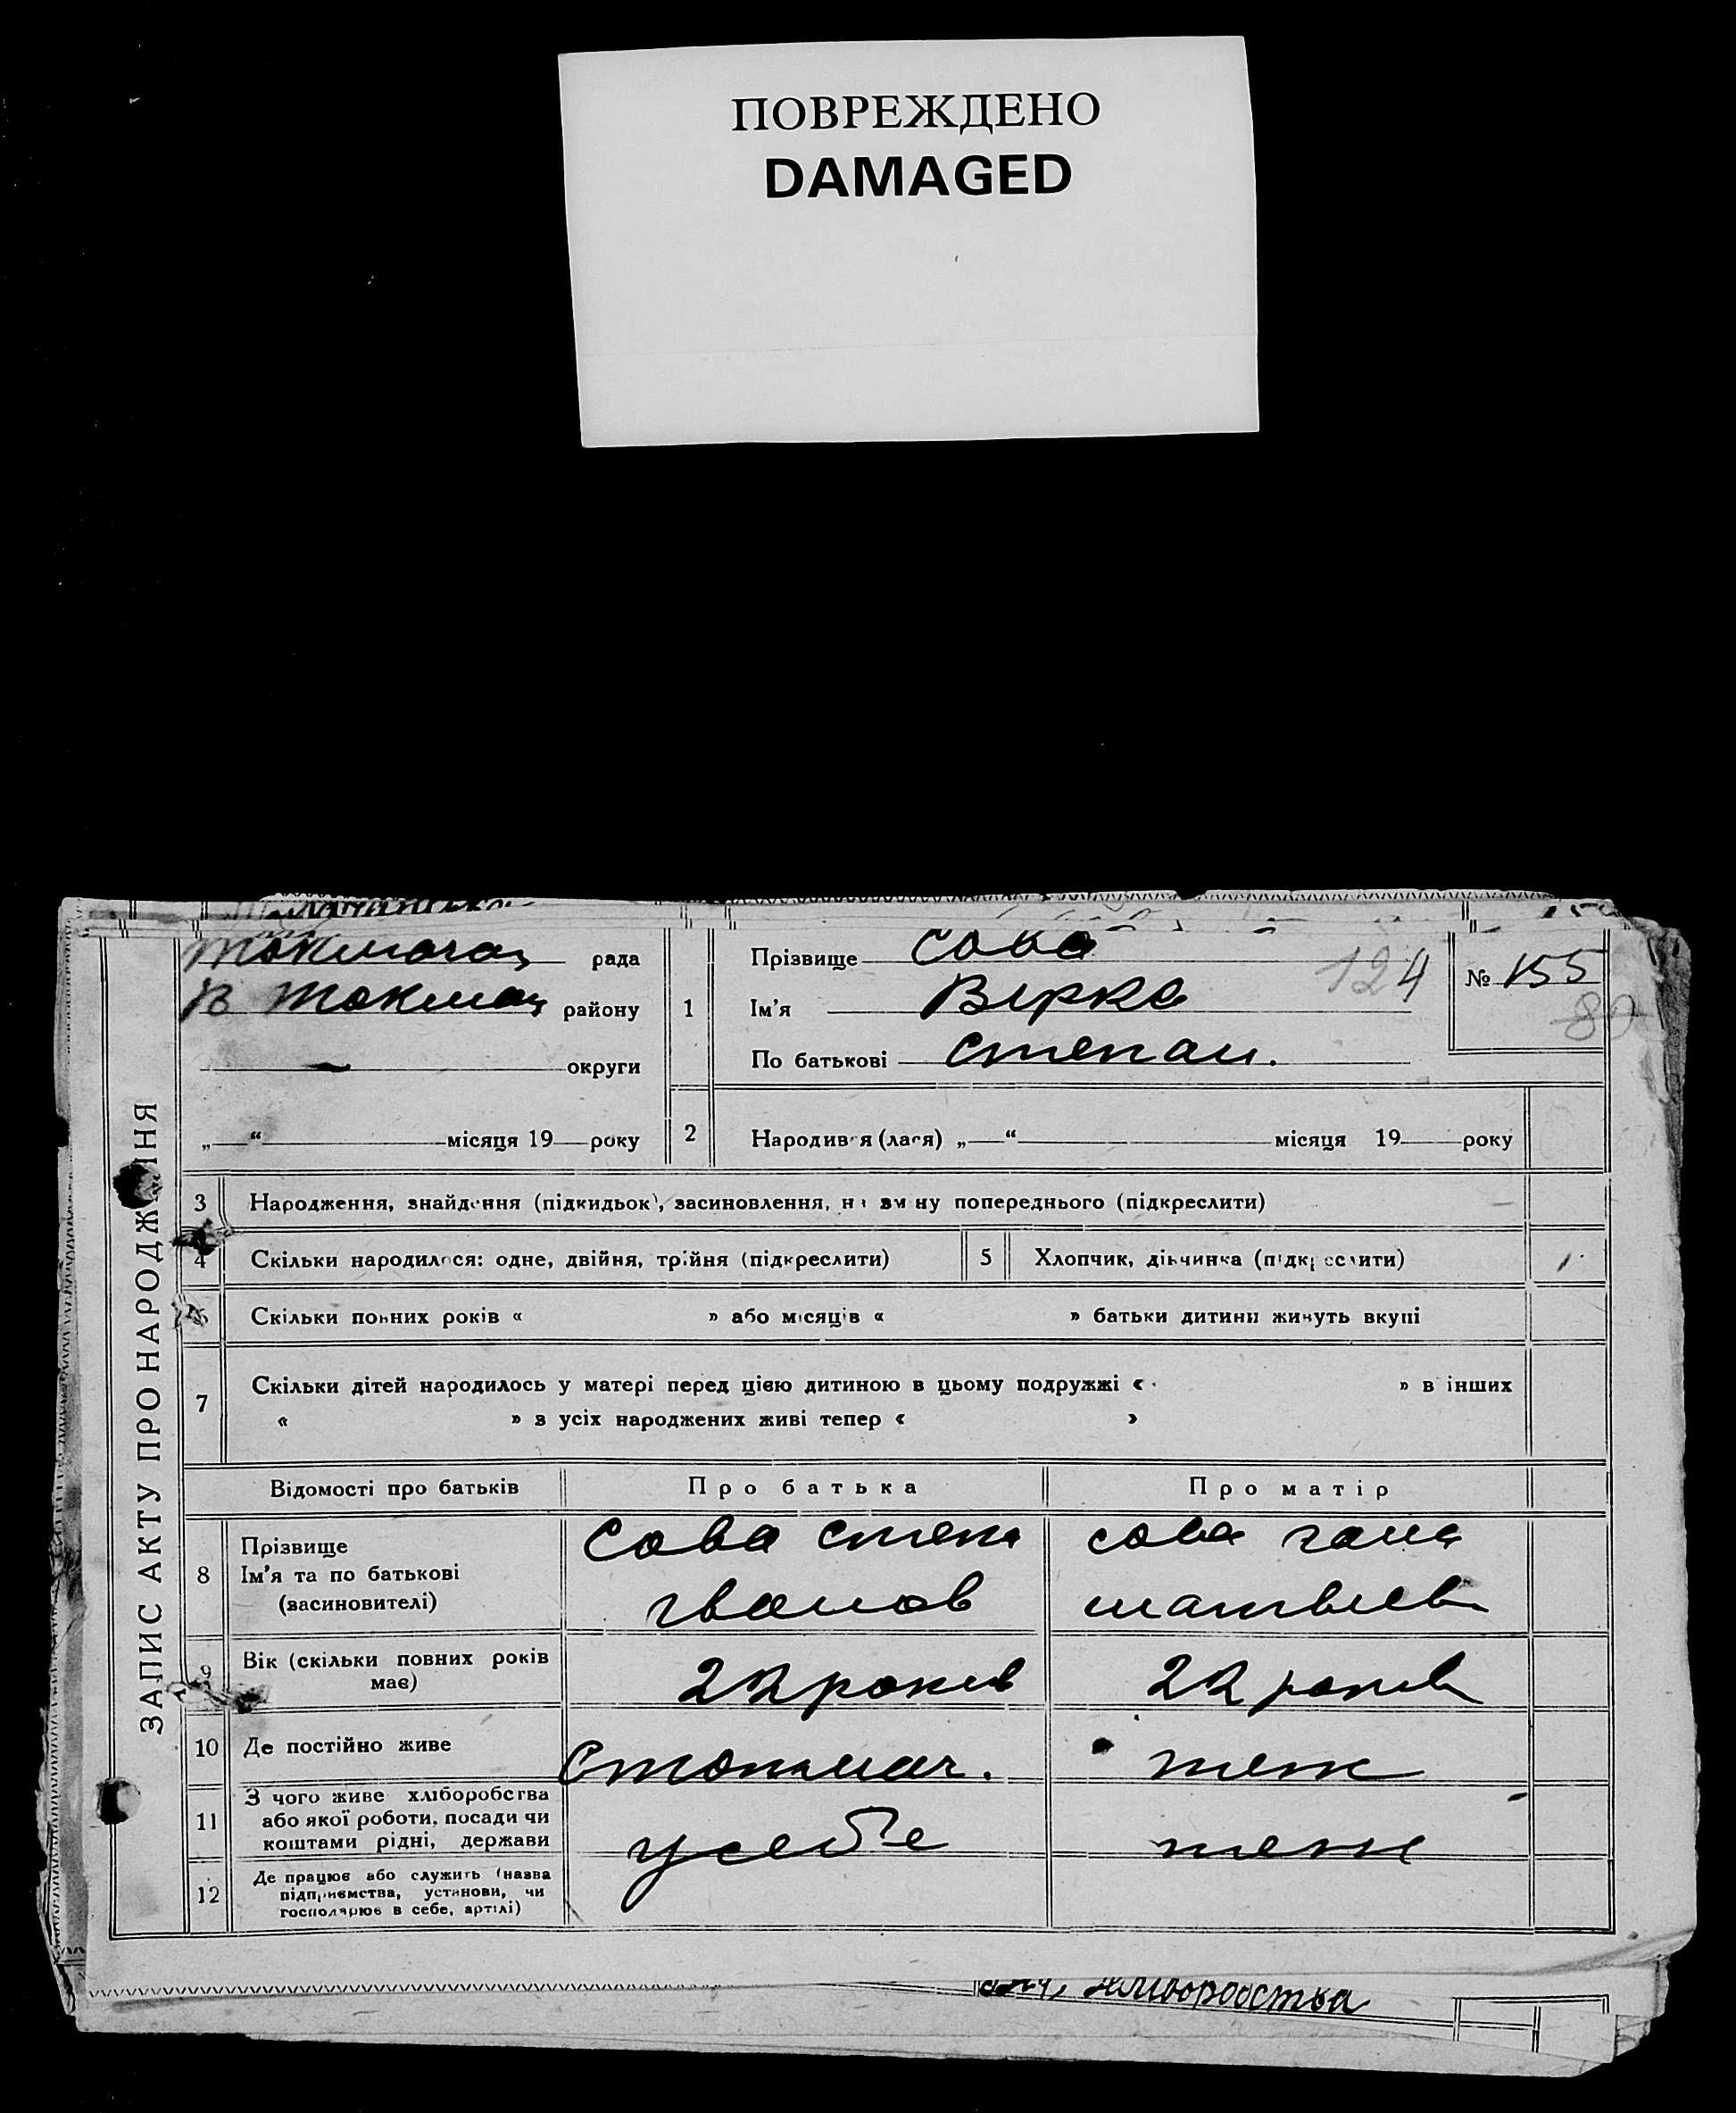 ПОВРЕЖДЕНО
DAMAGED
ЗАПИС АКТУ ПРО НАРОДЖЕННЯ
рада
В Токмац району
округи
„—“ місяця 19 року
1
Прізвище Сова
Ім'я Вірка
По батькові Степан.
124
№ 155
80
2 Народився (лася) „—“ місяця 19 року
3 Народження, знайдення (підкидьок), засиновлення, на зміну попереднього (підкреслити)
4 Скільки народилося: одне, двійня, трійня (підкреслити) 5 Хлопчик, дівчинка (підкреслити) 1
6 Скільки повних років « » або місяців « » батьки дитини живуть вкупі
7 Скільки дітей народилось у матері перед цією дитиною в цьому подружжі « » в інших
« » з усіх народжених живі тепер « »
Відомості про батьків Про батька Про матір
8 Прізвище
Ім'я та по батькові
(засиновителі)
Сова степ
івонов
сова гана
матвіев
9 Вік (скільки повних років має)
22 років 22 років
10 Де постійно живе
Стокмач. теж
11 З чого живе хліборобства
або якої роботи, посади чи
коштами рідні, держави
у себе теж
12 Де працює або служить (назва
підприємства, установи, чи
господарює в себе, артілі)
хліборобства